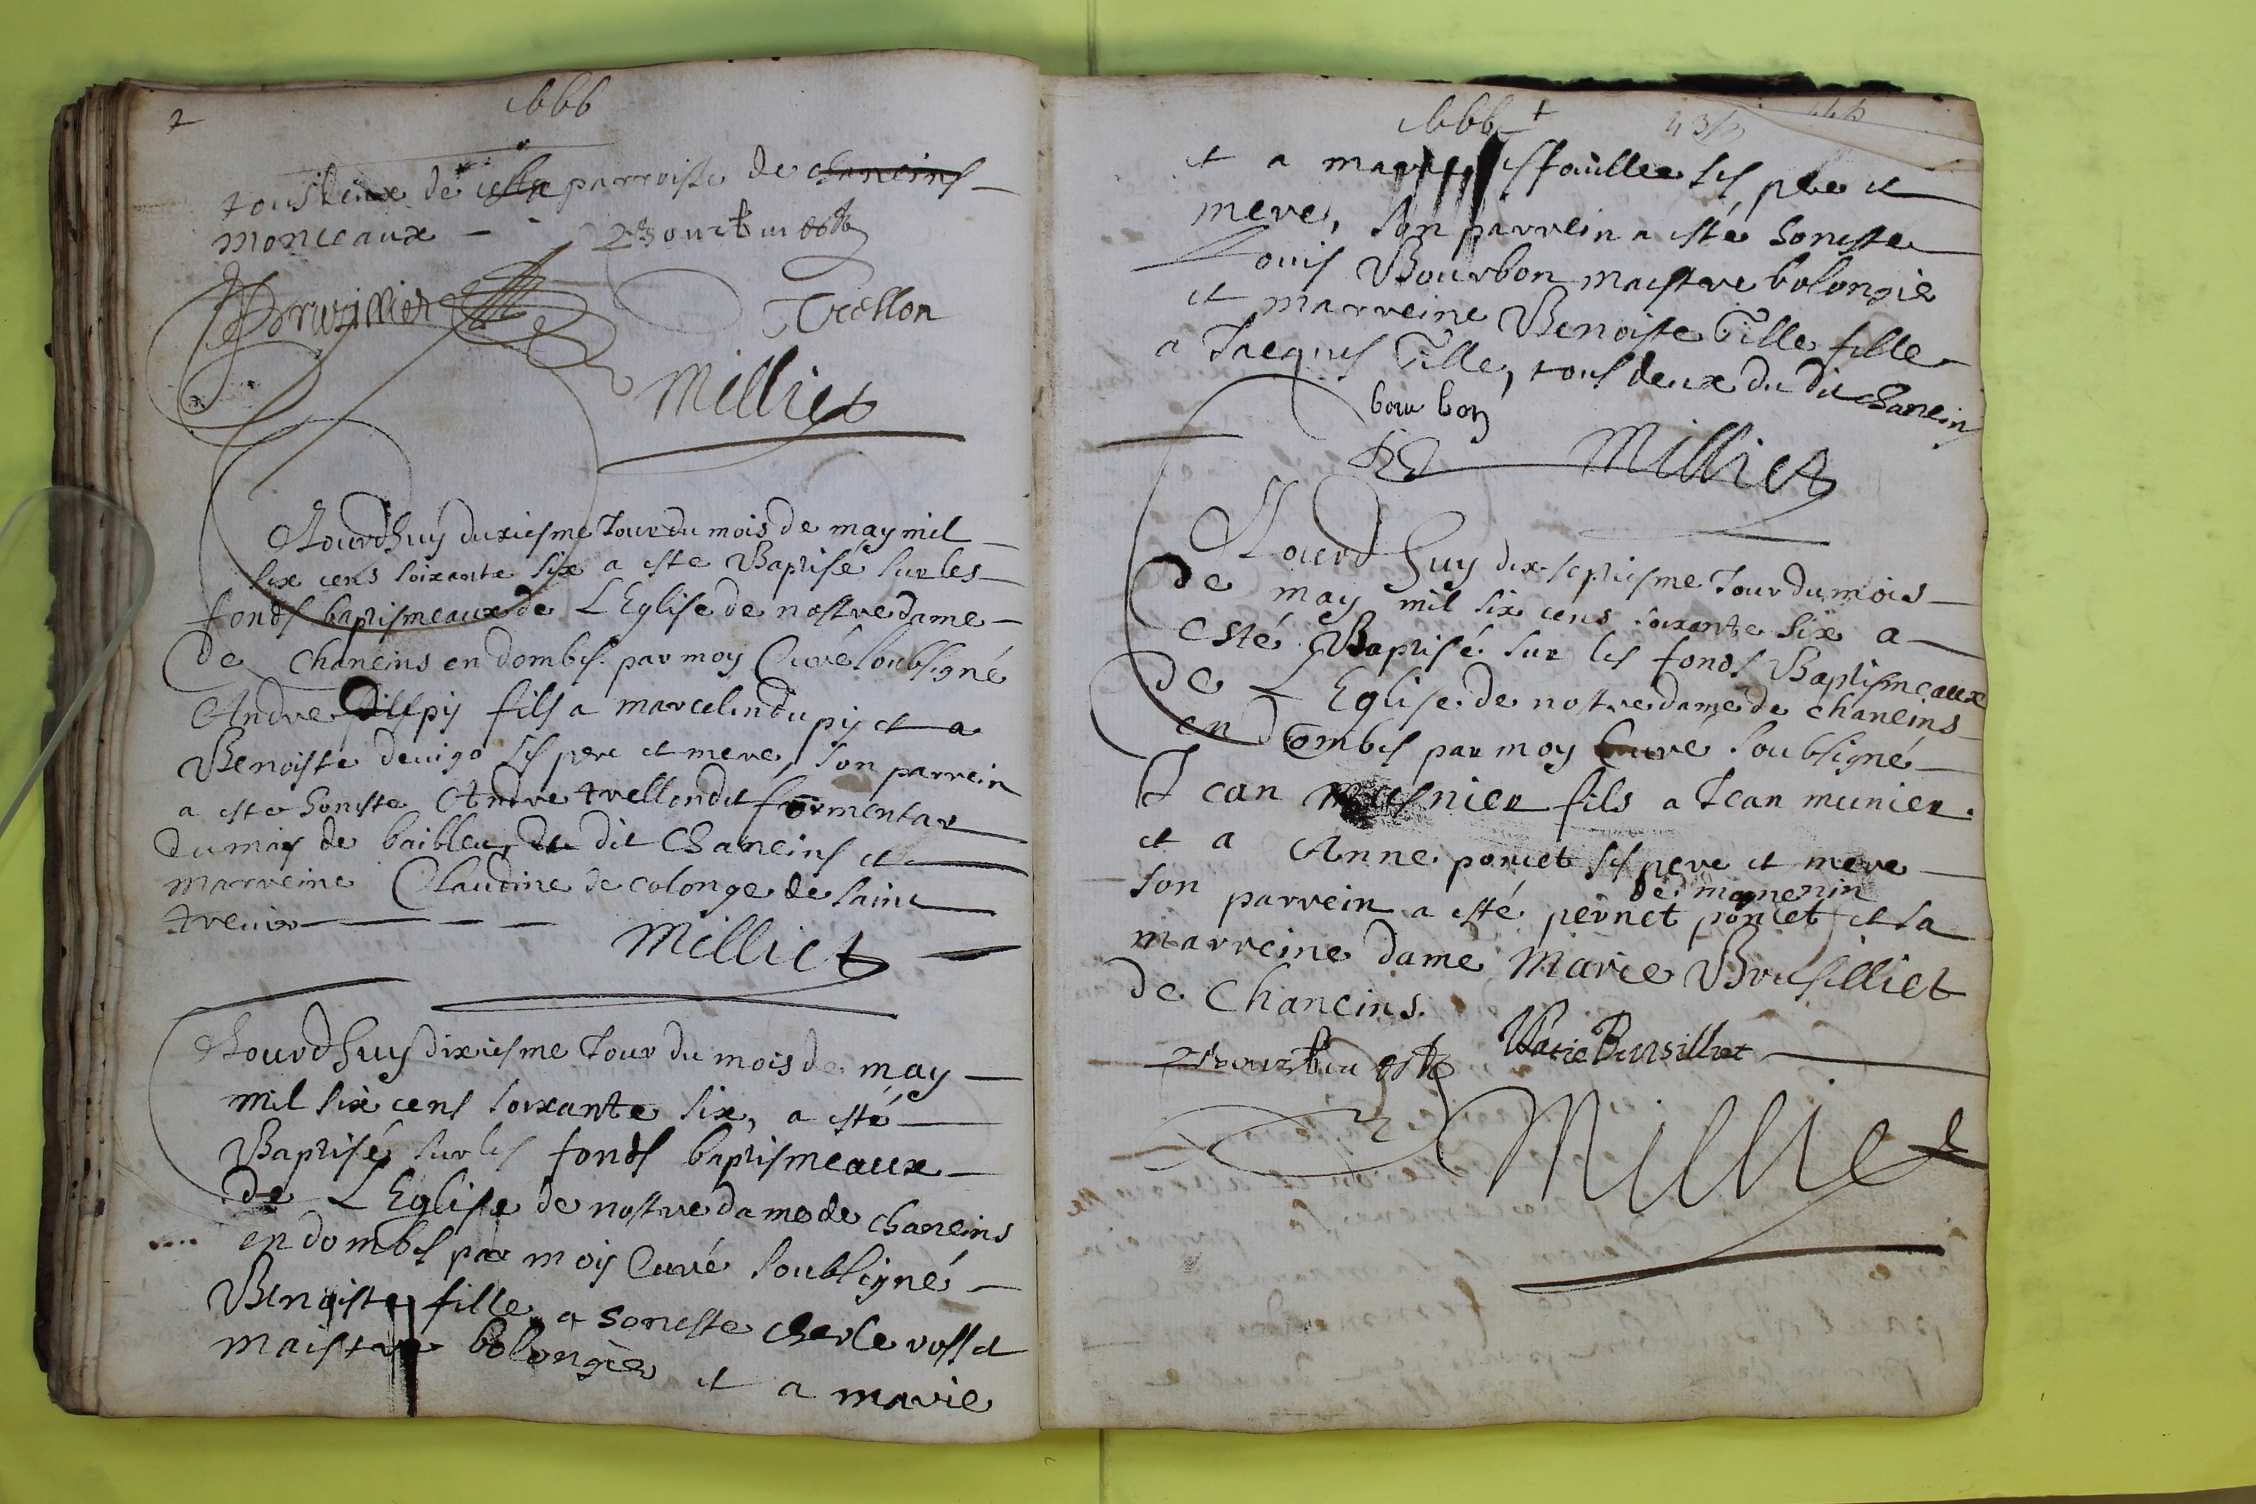 2
1666
tousdeux de cette parroisse de chaneins
monceaux
Trellon
Milliet
Aiourdhuy duxiesme Jour du mois de may mil
six cens soixante six a este Baptisé sur les
fonds baptismeaux de L Eglise de nostre dame
de chaneins en dombes par moy Curé soubsigné
Andre dupy fils a marcelin dupy et a
Benoiste devigo ses pere et mere, son parrein
a este honeste Andre trellon dit formentar
du mas de baibleu du dit Chaneins et
marreine Claudine de colonge de saint
trevier
Milliet
Aiourdhuy dixiesme Jour du mois de may
mil six cens soixante six, a esté
Baptisé sur les fonds baptismeaux
de L Eglise de nostre dame de chaneins
en dombes par moy Curé soubsigné
Benoiste fille a honeste cherle rosset
maistre bolongier et a marie
1666
et a marie esfouilles ses pere et
mere, son parrein a esté honeste
Louis Bourbon maistre bolongie
et marreine Benoiste Tille fille
a Jacques Tille, tous deux du dit chanein
bourbon
Milliet
Aiourdhuy dix septiesme Jour du mois
de may mil six cens soixante six a
esté Baptisé sur les fonds Baptismeaux
de L Eglise de nostre dame de chaneins
en Dombes par moy Curé soubsigné
Jean musnier fils a Jean munier
et a Anne poncet ses pere et mere
son parrein a esté pernet poncet de mognenin et sa
marreine dame Marie Brusilliet
de Chaneins.
Marie Brusilliet
Milliet